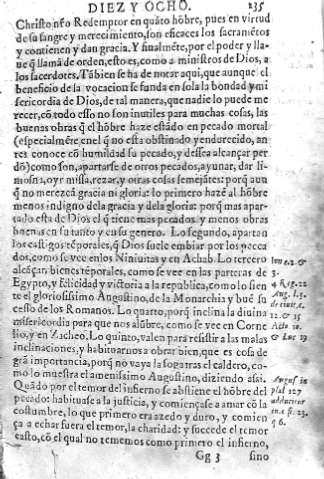 DIEZ Y OCHO. 235
Christo nr̃o Redemptor en quãto hõbre, pues en virtud
de su sangre y merecimiento, son eficaces los sacramẽtos
y contienen y dan gracia. Y finalmẽte, por el poder y lla-
ue q̃ llamã de orden, esto es, como a ministros de Dios, a
los sacerdotes, Tãbien se ha de notar aqui, que aunque el
beneficio de la vocacion se funda en sola la bondad y mi
sericordia de Dios, de tal manera, que nadie lo puede me
recer, cõ todo esso no son inutiles para muchas cosas, las
buenas obras q̃ el hõbre haze estãdo en pecado mortal
(especialmẽte en el q̃ no està obstinado y endurecido, an
tes conoce cõ humildad su pecado, y dessea alcançar per
dõ) como son, apartarse de otros pecados, ayunar, dar li-
mosna, oyr missa, rezar, y otras cosas semejãtes: porq̃ aun
q̃ no merezcã gracia ni gloria: lo primero hazẽ al hõbre
menos indigno de la gracia y de la gloria: porq̃ mas apar-
tado està de Dios el q̃ tiene mas pecados y menos obras
buenas en su tanto y en su genero. Lo segundo, apartan
los castigos tẽporales, q̃ Dios suele embiar por los peca
dos, como se vee en los Niniuitas y en Achab. Lo tercero
alcãçan bienes tẽporales, como se vee en las parteras de
Egypto, y felicidad y victoria a la republica, como lo sien
te el gloriosissimo Augustino, de la Monarchia y buẽ su
cesso de los Romanos. Lo quarto, porq̃ inclina la diuina
misericordia para que nos alũbre, como se vee en Corne
lio, y en Zacheo. Lo quinto, valen para resistir a las malas
inclinaciones, y habituarnos a obrar bien, que es cosa de
grã importancia, porq̃ no vaya la soga tras el caldero, co-
mo lo muestra el amenissimo Augustino, diziendo assi.
Quãdo por el temor del infierno se abstiene el hõbre del
pecado: habituase a la justicia, y comiençase a amar cõ la
costumbre, lo que primero era azedo y duro, y comien
ça a echar fuera el temor, la charidad: y succede el temor
casto, cõ el qual no tememos como primero el infierno,
Gg 3 sino
Ione. 2. &
3.
4 Reg. 22
Aug. l. 5.
de ciuit. c.
12. & 15
Acto 10.
& Luc 19
August in
psal 127